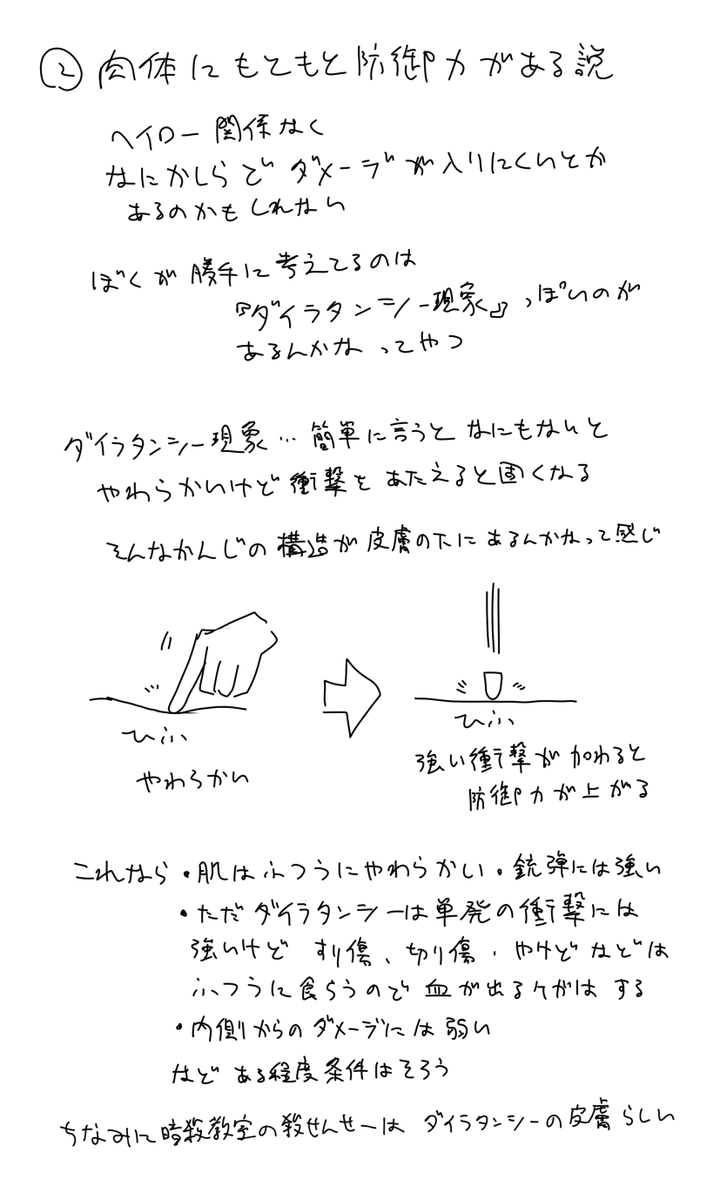 ② 肉体にもともと防御力がある説
ヘイロー関係なく
なにかしらでダメージが入りにくいとか
あるのかもしれない
ぼくが勝手に考えてるのは
『ダイラタンシー現象』っぽいのが
あるんかなってやつ
ダイラタンシー現象…簡単に言うとなにもないと
やわらかいけど衝撃をあたえると固くなる
そんなかんじの構造が皮膚の下にあるんかなって感じ
ひふ
やわらかい
ひふ
強い衝撃が加わると
防御力が上がる
これなら・肌はふつうにやわらかい。銃弾には強い
・ただダイラタンシーは単発の衝撃には
強いけどすり傷、切り傷、やけどなどは
ふつうに食らうので血が出るケガはする
・内側からのダメージには弱い
などある程度条件はそろう
ちなみに暗殺教室の殺せんせーはダイラタンシーの皮膚らしい